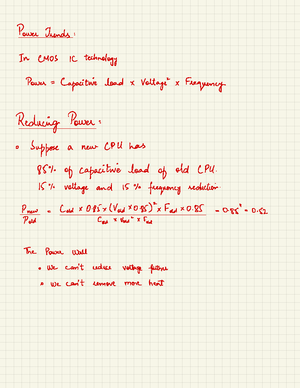 Power Trends:
In CMOS IC Technology
Power = Capacitive load × Voltage² × Frequency
Reducing Power:
• Suppose a new CPU has
85% of capacitive load of old CPU.
15% voltage and 15% frequency reduction
Pnew/Pold = Cold × 0.85 × (Vold × 0.85)² × Fold × 0.85 / Cold × Vold² × Fold = 0.85⁴ = 0.52
The Power Wall
• We can't reduce voltage further
• We can't remove more heat